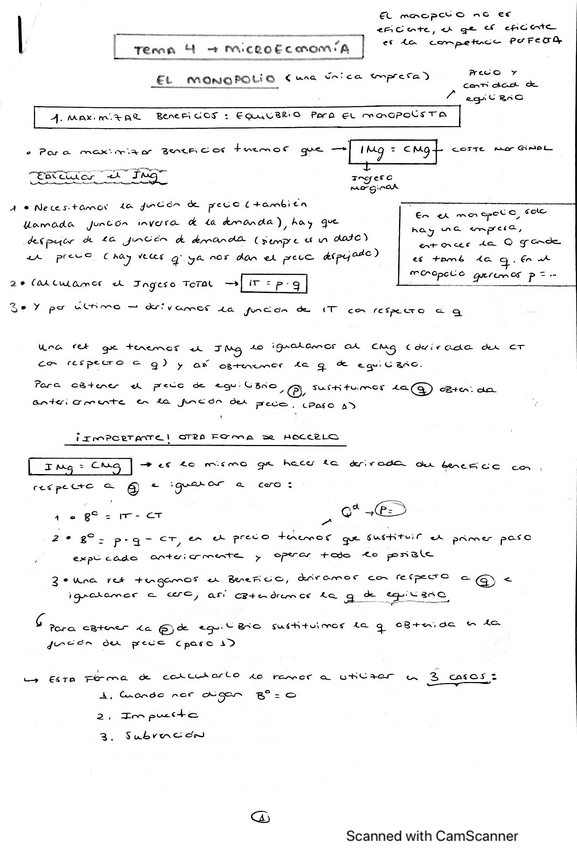 El monopolio no es
eficiente, el qe es eficiente
es la competencia PERFECTA
TEMA 4 → MICROECONOMÍA
EL MONOPOLIO (una única empresa)
Precio y
cantidad de
equilibrio
1. MAXIMIZAR BENEFICIOS: EQUILIBRIO PARA EL MONOPOLISTA
• Para maximizar BENEFICIOS tenemos que → IMg = CMg → COSTE MARGINAL
Ingreso
Marginal
Calcular el IMg
1 • Necesitamos la función de precio (también
llamada función inversa de la demanda), hay que
despejar de la función de demanda (siempre es un dato)
el precio (hay veces q' ya nos dan el precio despejado)
En el monopolio, solo
hay una empresa,
entonces la Q grande
es tamb la q. En el
monopolio queremos p = ...
2 • Calculamos el Ingreso TOTAL → IT = p · q
3 • Y por último → derivamos la función de IT con respecto a q
Una vez que tenemos el IMg lo igualamos al CMg (derivada del CT
con respecto a q) y así obtenemos la q de equilibrio.
Para obtener el precio de equilibrio, p, sustituimos la q obtenida
anteriormente en la función del precio. (PASO 1)
¡IMPORTANTE! OTRA FORMA DE HACERLO
IMg = CMg → es lo mismo que hacer la derivada del beneficio con
respecto a q e igualar a cero:
1 • Bº = IT - CT
Qd → P=
2 • Bº = p · q - CT, en el precio tenemos que sustituir el primer paso
explicado anteriormente y operar todo lo posible
3 • Una vez tengamos el Beneficio, derivamos con respecto a q e
igualamos a cero, así obtendremos la q de equilibrio
Para obtener la p de equilibrio sustituimos la q obtenida en la
función del precio (paso 1)
↳ ESTA FORMA de calcularlo lo vamos a utilizar en 3 CASOS:
1. Cuando nos digan Bº = 0
2. Impuesto
3. Subvención
1
Scanned with CamScanner